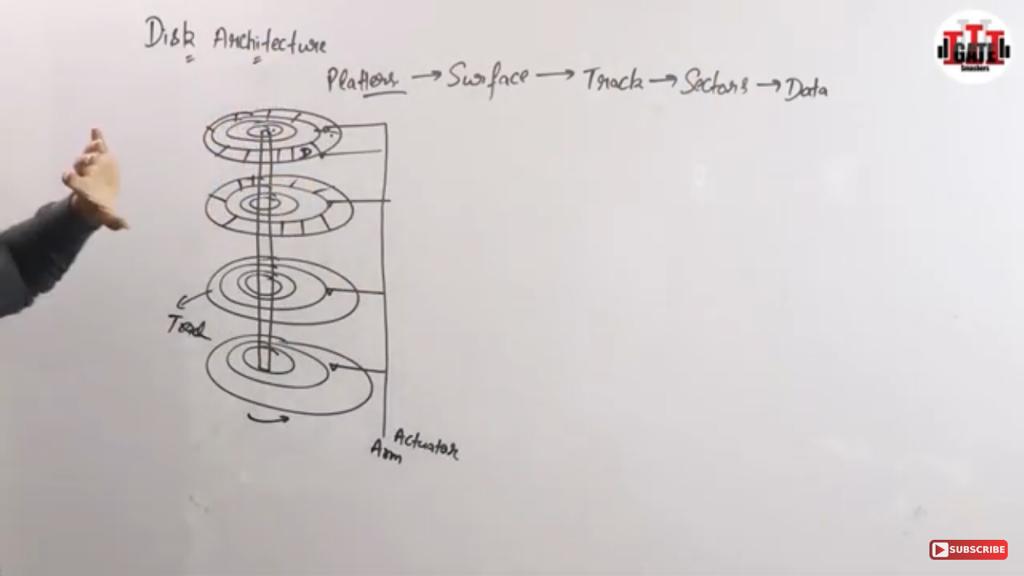 Disk Architecture
Platters → Surface → Track → Sectors → Data
D
Track
Actuator
Arm
GATE
Smashers
SUBSCRIBE